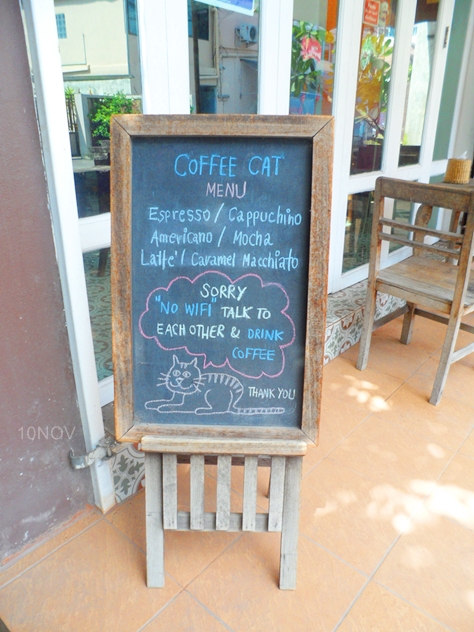 COFFEE CAT
MENU
Espresso / Cappuchino
Americano / Mocha
Latte' / Caramel Macchiato
SORRY
"NO WIFI" TALK TO
EACH OTHER & DRINK
COFFEE
THANK YOU
10NOV